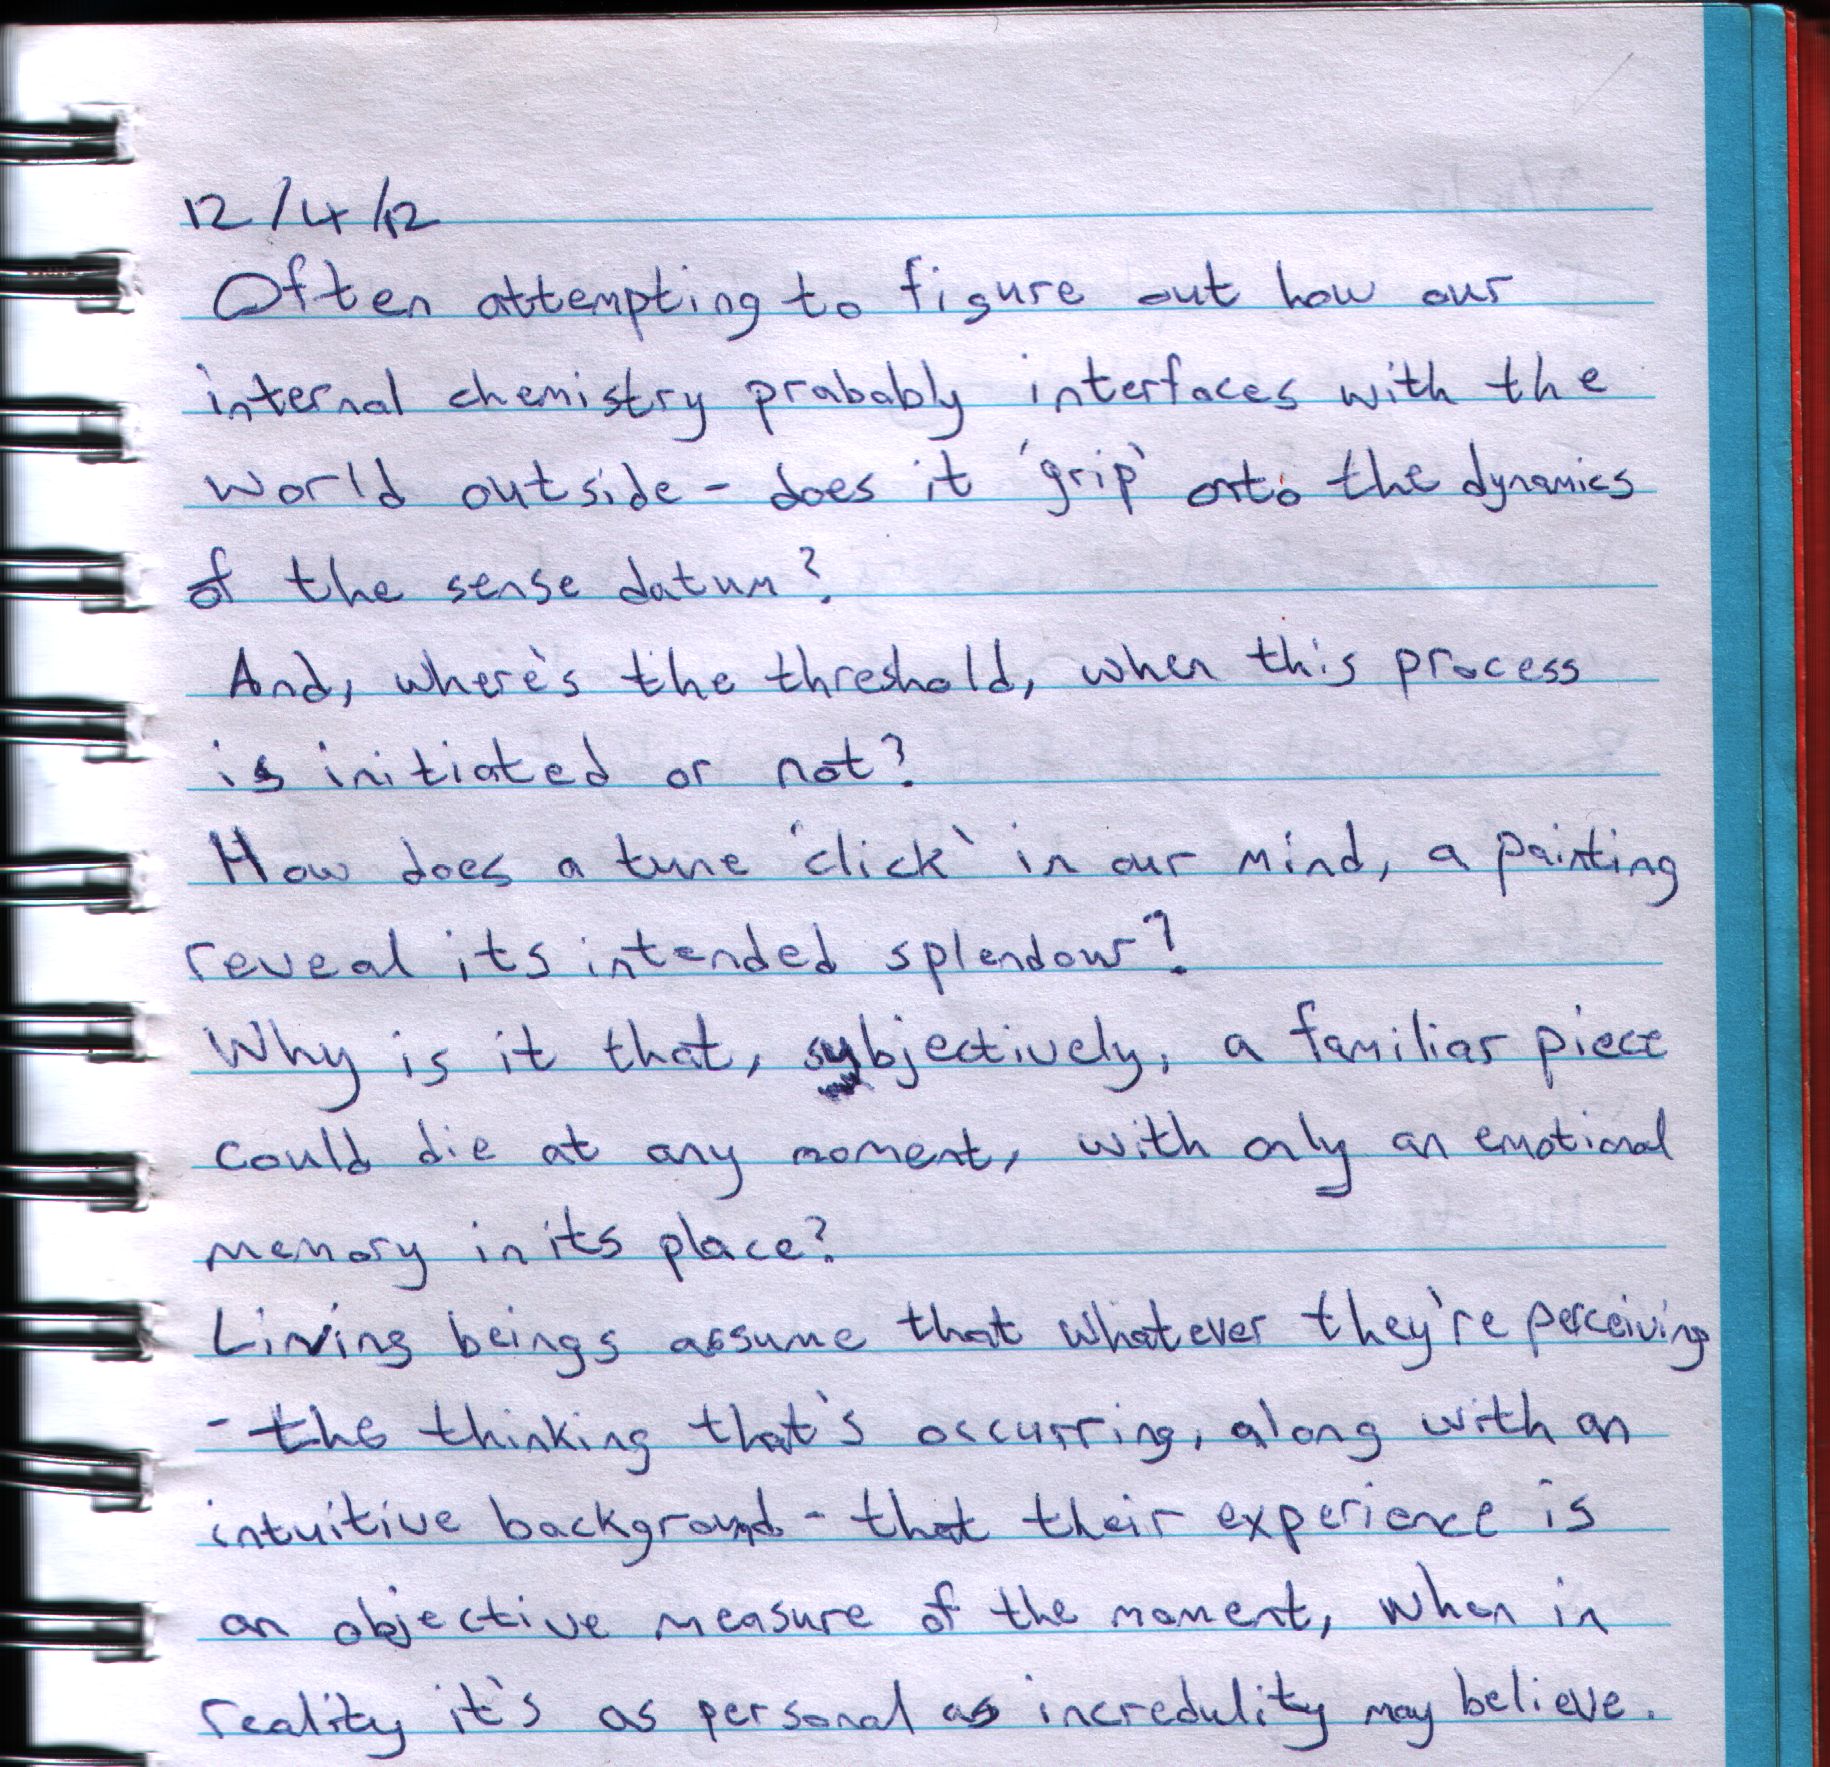 12/4/12
Often attempting to figure out how our
internal chemistry probably interfaces with the
world outside - does it 'grip' onto the dynamics
of the sense datum?
And, where's the threshold, when this process
is initiated or not?
How does a tune 'click' in our mind, a painting
reveal its intended splendour?
Why is it that, subjectively, a familiar piece
could die at any moment, with only an emotional
memory in its place?
Living beings assume that whatever they're perceiving
- the thinking that's occurring, along with an
intuitive background - that their experience is
an objective measure of the moment, when in
reality it's as personal as incredulity may believe.